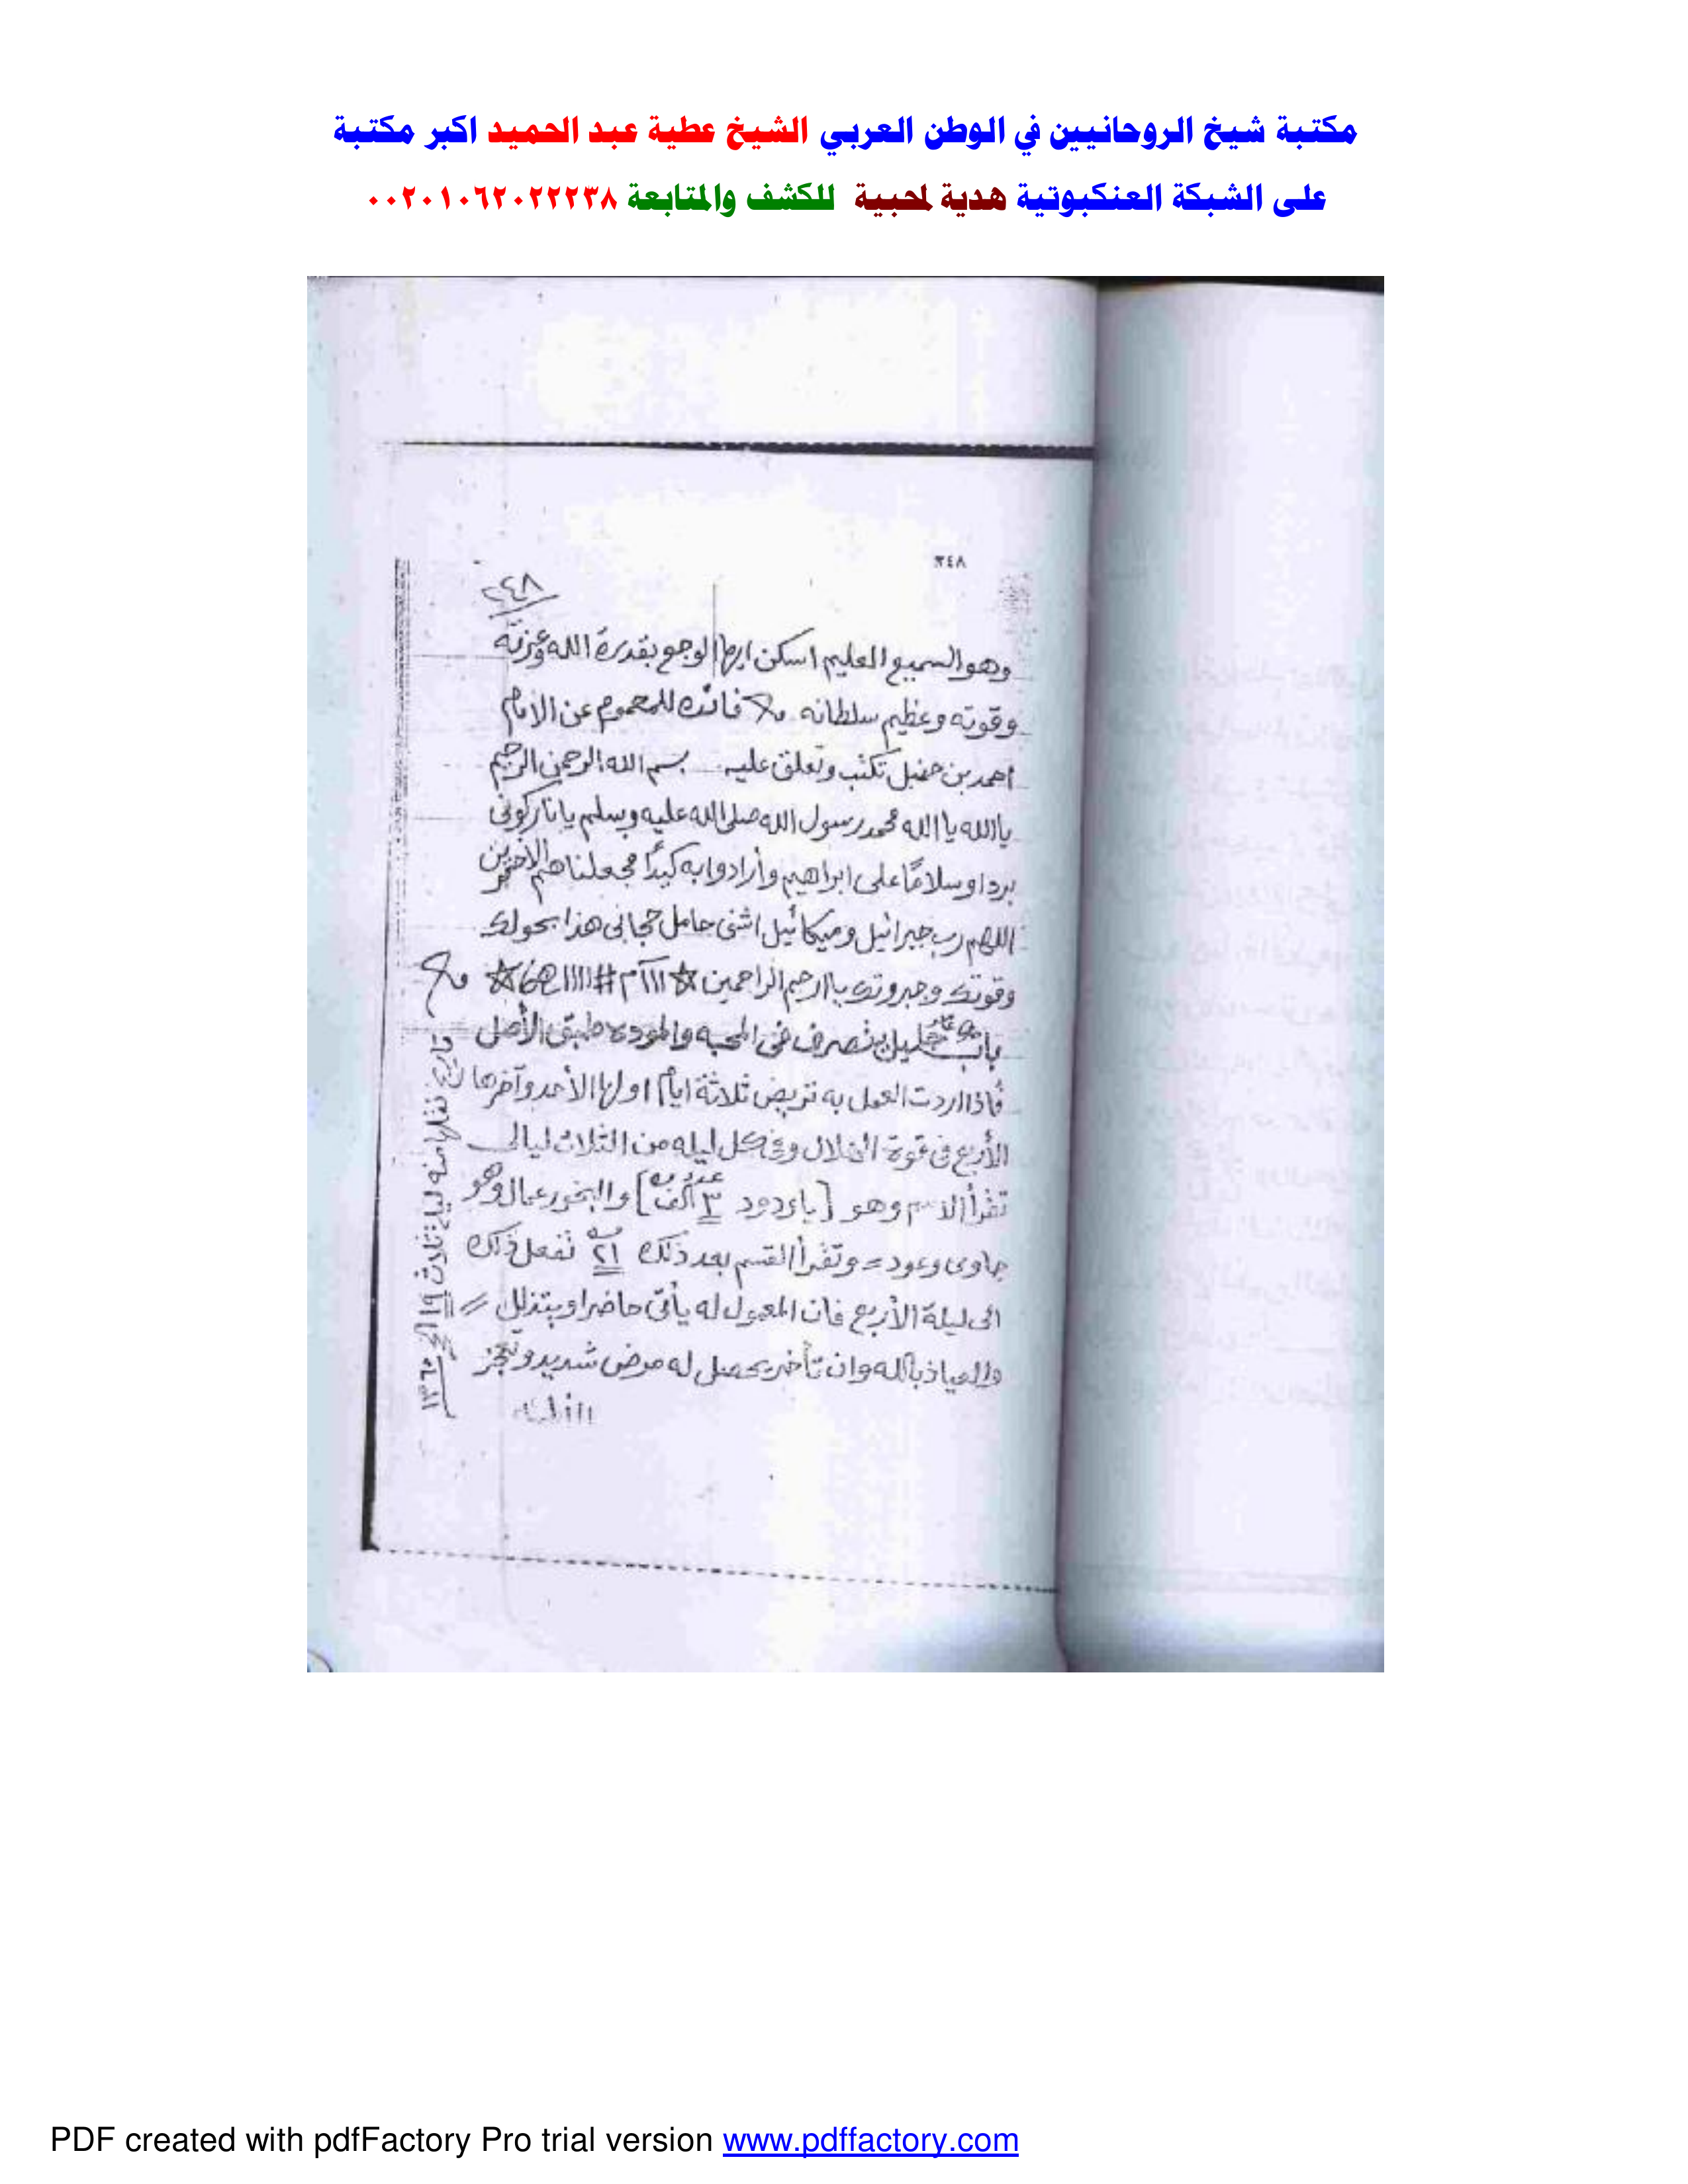 مكتبة شيخ الروحانيين في الوطن العربي الشيخ عطية عبد الحميد اكبر مكتبة
على الشبكة العنكبوتية هدية لمحبية للكشف والمتابعة ٠٠٢٠١٠٦٢٠٢٢٢٣٨
٣٤٨
٣٤٨
وهو السميع العليم اسكن ايها الوجع بقدرة الله وعزته
وقوته وعظيم سلطانه فائده للمحموم عن الامام
احمد بن حنبل تكتب وتعلق عليه بسم الله الرحمن الرحيم
يا الله يا الله محمد رسول الله صلى الله عليه وسلم يا نار كونى
بردا وسلامًا على ابراهيم وأرادوا به كيدًا فجعلناهم الاخسرين
اللهم رب جبرائيل وميكائيل اشفى حامل حجابى هذا بحولك
وقوتك وجبروتك يا ارحم الراحمين ☆ ااا م # اااا ☆
باب جليل يتصرف فى المحبه والموده طبق الأصل
فأذا اردت العمل به تريض ثلاثة ايام اولها الأحد وآخرها
الأربع فى قوة الهلال وفى كل ليله من الثلاث ليالى
تقرأ الاسم وهو [يا ودود عدد ٣ ألف] والبخور عمال وهو
جاوى وعود = وتقرأ القسم بعد ذلك ٢١ تفعل ذلك
الى ليلة الأربع فان المعمول له يأتى حاضرا ويتذلل =
والعياذ بالله وان تأخر يحصل له مرض شديد وتعجز
الأطباء
تاريخ نقلها منه ليلة ثلاث ١٩ ١٣٦٥
PDF created with pdfFactory Pro trial version www.pdffactory.com